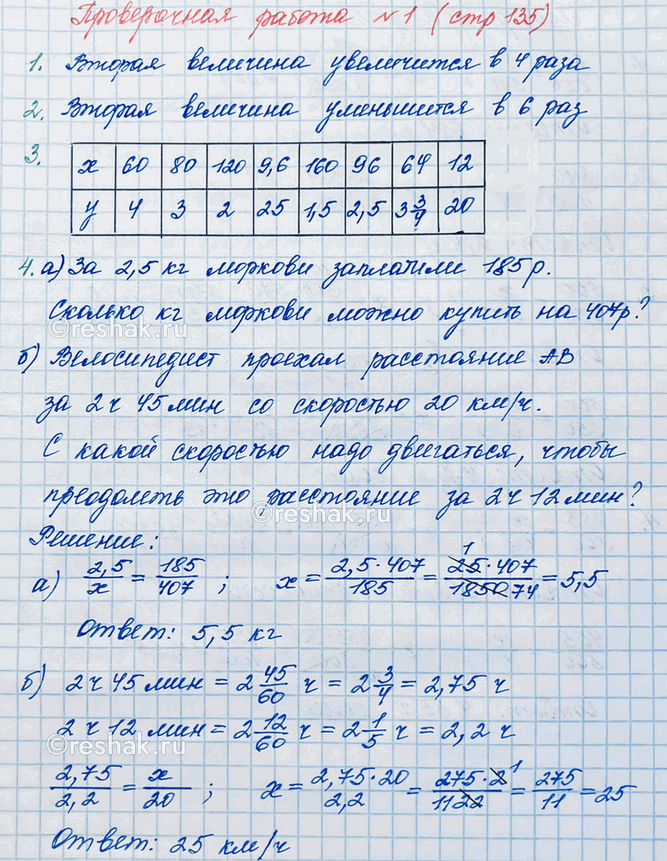 Проверочная работа №1 (стр 135)
1. Вторая величина увеличится в 4 раза
2. Вторая величина уменьшится в 6 раз
3.
x 60 80 120 9,6 160 96 64 12
y 4 3 2 25 1,5 2,5 3 3/4 20
4. а) За 2,5 кг моркови заплатили 185 р.
Сколько кг моркови можно купить на 407р?
© reshak.ru
б) Велосипедист проехал расстояние АВ
за 2 ч 45 мин со скоростью 20 км/ч.
С какой скоростью надо двигаться, чтобы
преодолеть это расстояние за 2 ч 12 мин?
© reshak.ru
Решение:
а) 2,5/x = 185/407 ; x = 2,5·407/185 = 25·407/1850 = 5,5 1 74
Ответ: 5,5 кг
б) 2 ч 45 мин = 2 45/60 ч = 2 3/4 = 2,75 ч
2 ч 12 мин = 2 12/60 ч = 2 1/5 ч = 2,2 ч
© reshak.ru
2,75/2,2 = x/20 ; x = 2,75·20/2,2 = 275·2/11 22 = 275/11 = 25 1
Ответ: 25 км/ч